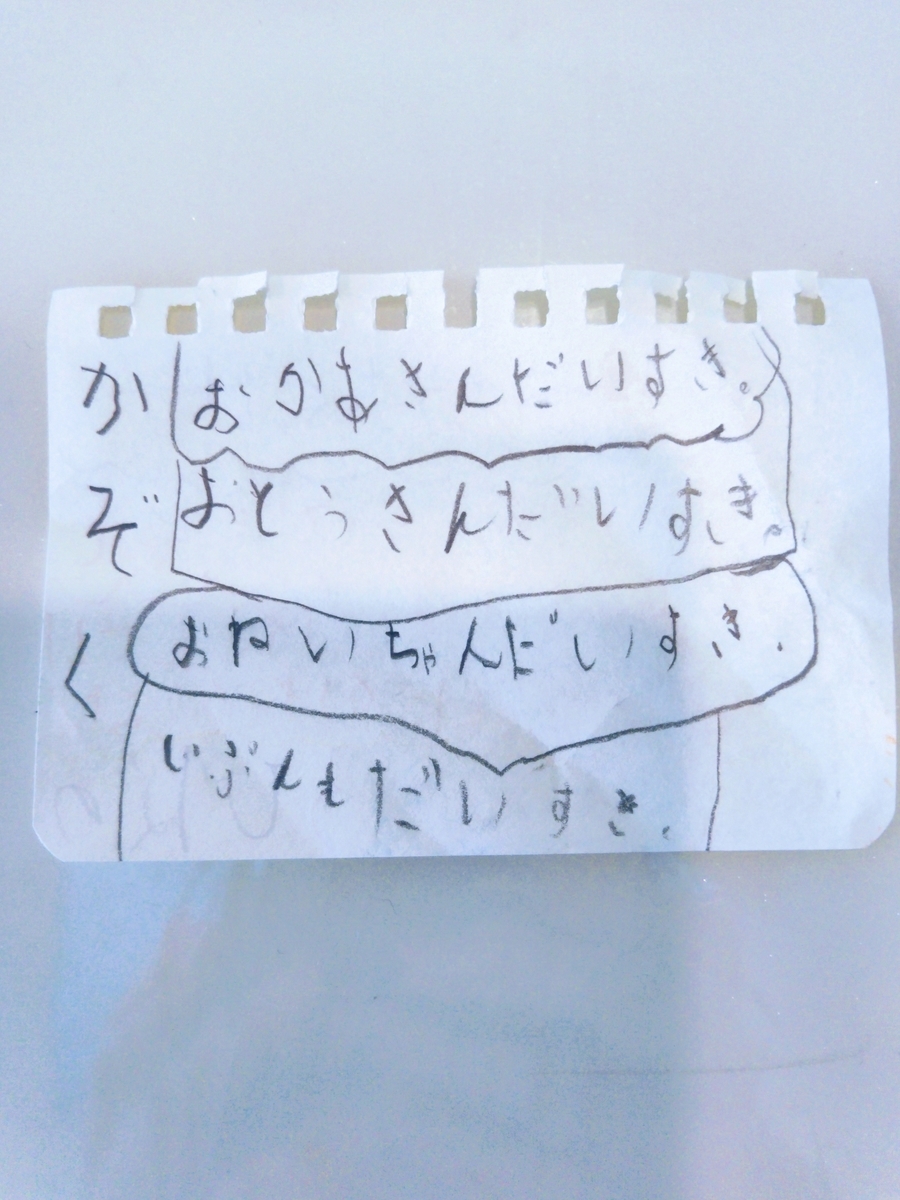 かぞく
おかあさんだいすき。
おとうさんだいすき。
おねいちゃんだいすき.
じぶんもだいすき.